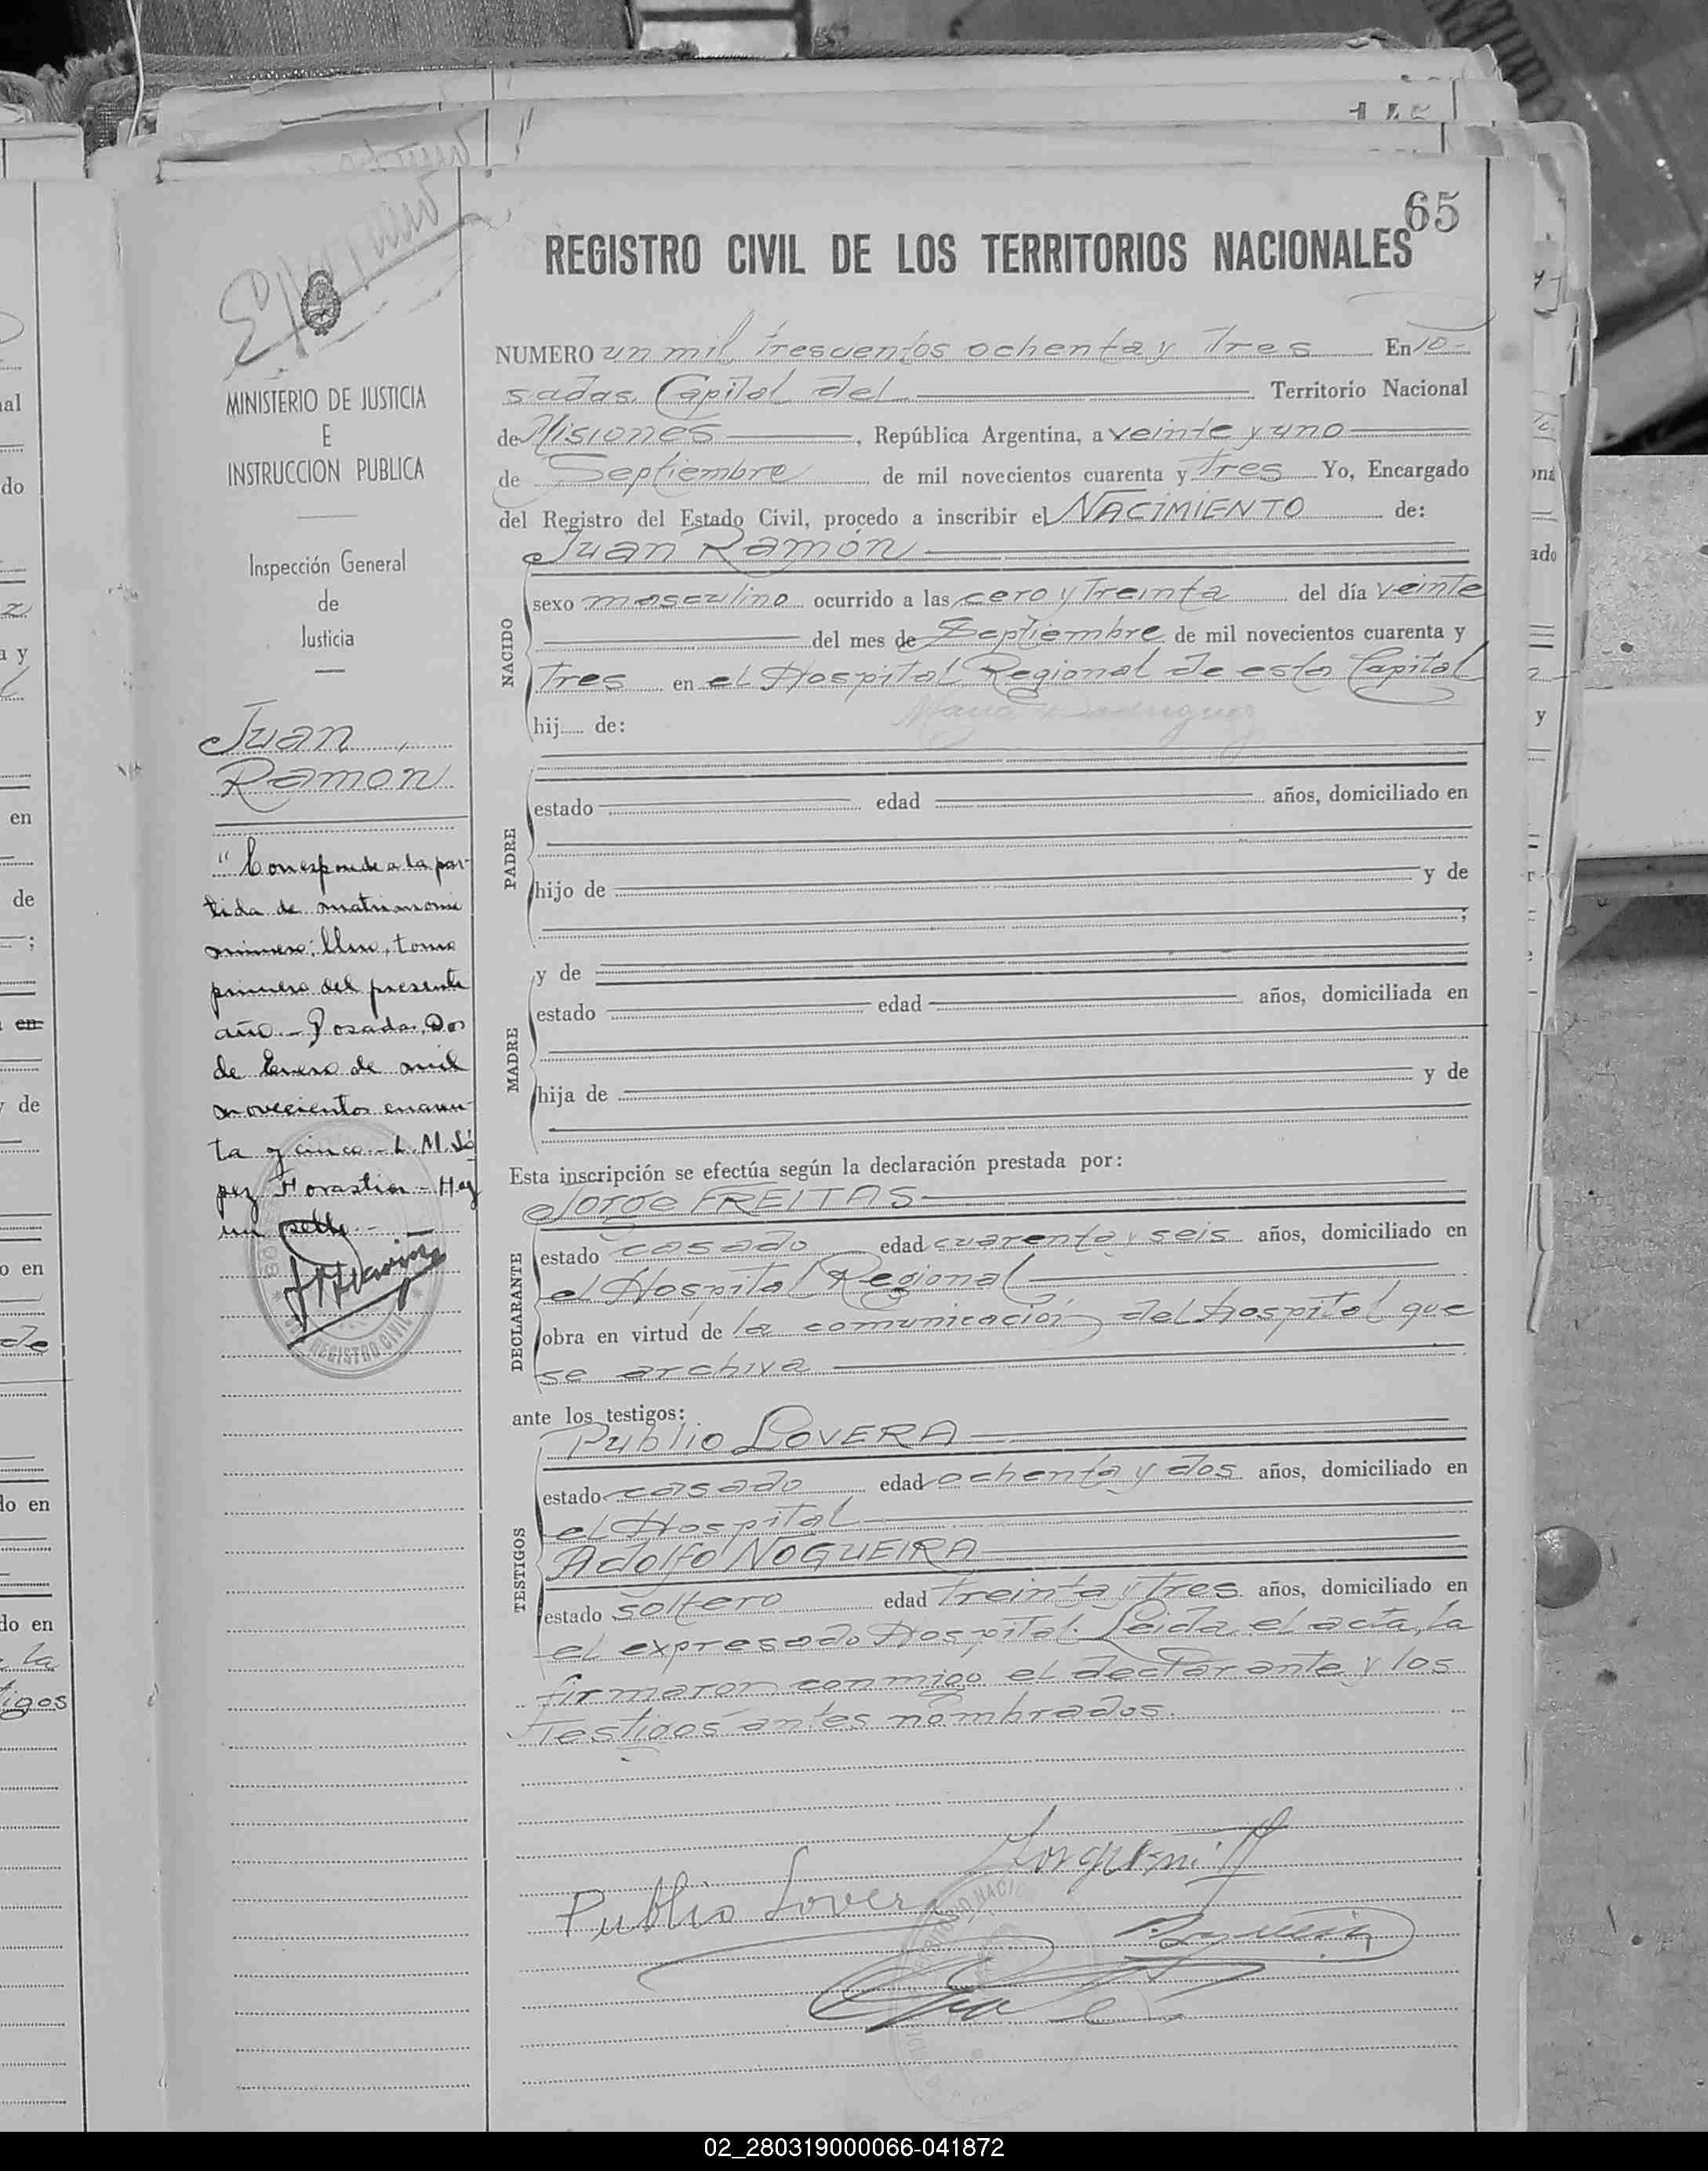 65
REGISTRO CIVIL DE LOS TERRITORIOS NACIONALES
MINISTERIO DE JUSTICIA
E
INSTRUCCION PUBLICA
Inspección General
de
Justicia
Juan
Ramon
"Corresponde a la par-
tida de matrimonio
número: Uno, tomo
primero del presente
año - Posadas, Dos
de Enero de mil
novecientos cuaren-
ta y cinco - L. M. Ló
pez Forastier - Hay
un sello.-
REGISTRO CIVIL
NUMERO un mil trescientos ochenta y Tres En Po-
sadas, Capital del Territorio Nacional
de Misiones, República Argentina, a veinte y uno
de Septiembre de mil novecientos cuarenta y Tres Yo, Encargado
del Registro del Estado Civil, procedo a inscribir el NACIMIENTO de:
Juan Ramón
NACIDO
sexo masculino ocurrido a las cero y Treinta del día veinte
del mes de Septiembre de mil novecientos cuarenta y
Tres en el Hospital Regional de esta Capital
hij de: Maria Rodriguez
PADRE
estado edad años, domiciliado en
hijo de y de
;
MADRE
y de
estado edad años, domiciliada en
hija de y de
Esta inscripción se efectúa según la declaración prestada por:
Jorge FREITAS
DECLARANTE
estado casado edad cuarenta y seis años, domiciliado en
el Hospital Regional
obra en virtud de la comunicación del Hospital que
se archiva
ante los testigos:
Publio LOVERA
TESTIGOS
estado casado edad ochenta y dos años, domiciliado en
el Hospital
Adolfo NOGUEIRA
estado soltero edad treinta y Tres años, domiciliado en
el expresado Hospital. Leida el acta, la
firmaron conmigo el declarante y los
Testigos antes nombrados.
Publio Lovera
02_280319000066-041872